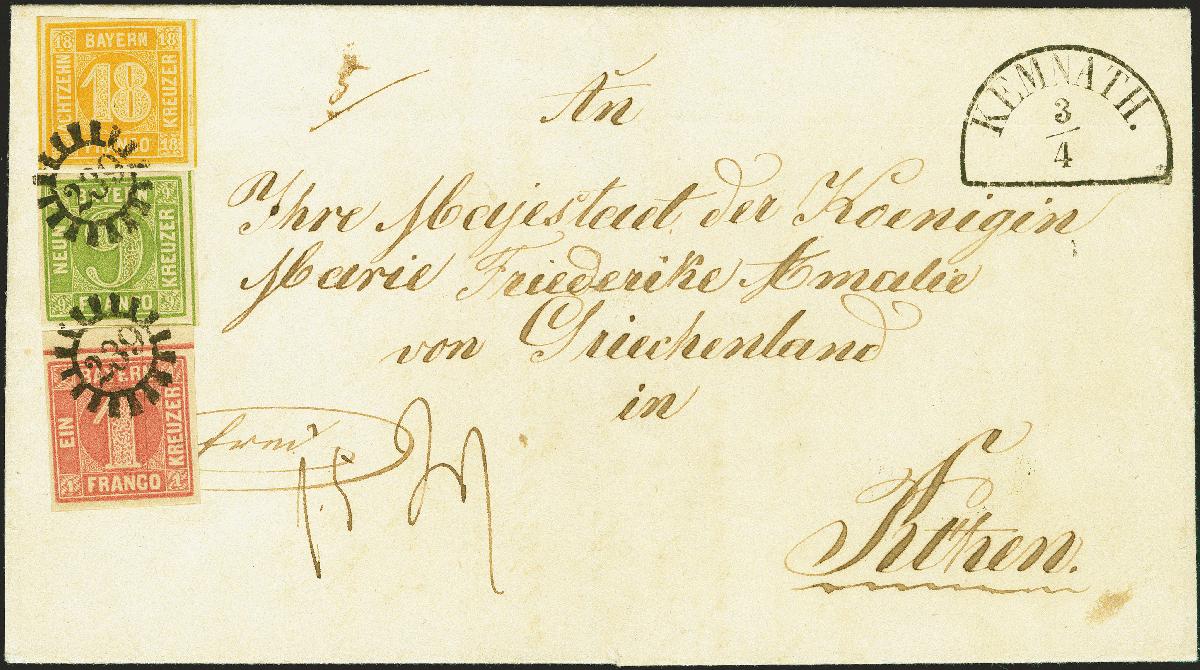 18 BAYERN 18
ACHTZEHN 18 KREUZER
FRANCO 18
239
NEUN 9 KREUZER
9 FRANCO 9
239
BAYERN
EIN 1 KREUZER
1 FRANCO 1
KEMNATH.
3
4
An
Ihre Majestaat der Koenigin
Marie Friederike Amalie
von Griechenland
in
Athen.
frei